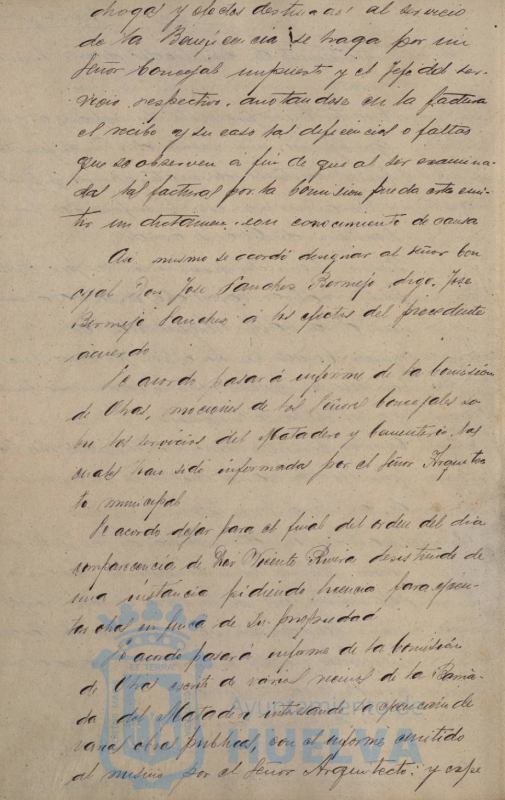 drogas y efectos destinados al servicio
de la Beneficencia, se haga por un
Señor Concejal impuesto y el Jefe del ser-
vicio respectivo, anotandose en la factura
el recibo y en su caso las deficencias o faltas
que se observen á fin de que al ser examina-
das las facturas por la Comision pueda esta emi-
tir un dictamen con conocimiento de causa
Asi mismo se acordó designar al Señor Con
cejal Don Jose Sanchez Bermejo digo, Jose
Bermejo Sanchez á los efectos del precedente
acuerdo
Se acordo pasar á informe de la Comisión
de Obras, mociones de los Señores Concejales so
bre los servicios del Matadero y Cementerio, las
cuales han sido informadas por el Señor Arquitec
to municipal
Se acordo dejar para el final del orden del dia
comparecencia de Don Vicente Rivera desistiendo de
una instancia pidiendo licencia para ejecu-
tar obras en finca de su propiedad
Se acordo pasar á informe de la Comisión
de Obras escrito de varios vecinos de la Barria
da del Matadero interesando la ejecución de
varias obras publicas, con el informe emitido
al mismo por el Señor Arquitecto; y expe
Ayuntamiento de
HUELVA